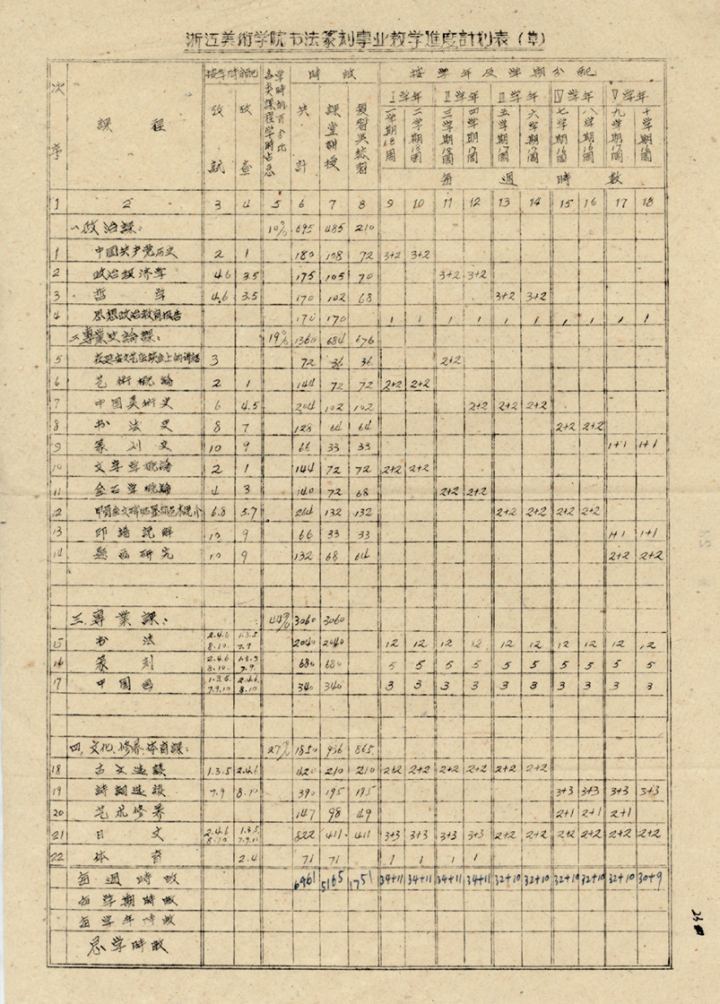 浙江美術学院书法篆刻專业教学進度計划表（草）
次序 課程 按学时分配 考試 考查 各类課程学時占总学時的百分比 時数 共計 課堂講授 复習与練習 按学年及学期分配
I学年 II学年 III学年 IV学年 V学年
一学期18週 二学期18週 三学期18週 四学期17週 五学期17週 六学期17週 七学期16週 八学期16週 九学期 十学期
每週時数
1 2 3 4 5 6 7 8 9 10 11 12 13 14 15 16 17 18
一.政治課： 10% 695 485 210
1 中国共产党历史 2 1 180 108 72 3+2 3+2
2 政治经济学 4.6 3.5 175 105 70 3+2 3+2
3 哲学 4.6 3.5 170 102 68 3+2 3+2
4 思想政治教育报告 170 170 1 1 1 1 1 1 1 1 1 1
二.專業史論課： 19% 1360 684 676
5 在延安文艺座談会上的講話 3 72 36 36 2+2
6 艺術概論 2 1 144 72 72 2+2 2+2
7 中国美術史 6 4.5 204 102 102 2+2 2+2 2+2
8 书法史 8 7 128 64 64 2+2 2+2
9 篆刻史 10 9 66 33 33 1+1 1+1
10 文字学概論 2 1 144 72 72 2+2 2+2
11 金石学概論 4 3 140 72 68 2+2 2+2
12 6.8 5.7 264 132 132 2+2 2+2 2+2 2+2
13 印譜 10 9 66 33 33 1+1 1+1
14 題画研究 10 9 132 68 64 2+2 2+2
三.專業課： 44% 3060 3060
15 书法 2.4.6 8.10 1.3.5 7.9 2040 2040 12 12 12 12 12 12 12 12 12 12
16 篆刻 2.4.6 8.10 1.3.5 7.9 680 680 5 5 5 5 5 5 5 5 5 5
17 中国画 340 340 3 3 3 3 3 3 3 3 3 3
四.文化.修养.体育課： 27% 1850 936 865
18 古文选讀 1.3.5 2.4.6 420 210 210 2+2 2+2 2+2 2+2 2+2 2+2
19 詩詞选讀 7.9 8.10 390 195 195 3+3 3+3 3+3 3+3
20 艺术修养 147 98 49 2+1 2+1 2+1
21 日文 2.4.6 8.10 1.3.5 7.9 822 411 411 3+3 3+3 3+3 3+3 2+2 2+2 2+2 2+2 2+2 2+2
22 体育 2.4 71 71 1 1 1 1
每週時数 6961 5165 1751 34+11 34+11 34+11 34+11 32+10 32+10 32+10 32+10 32+10 30+9
每学期時数
每学年時数
总学時数